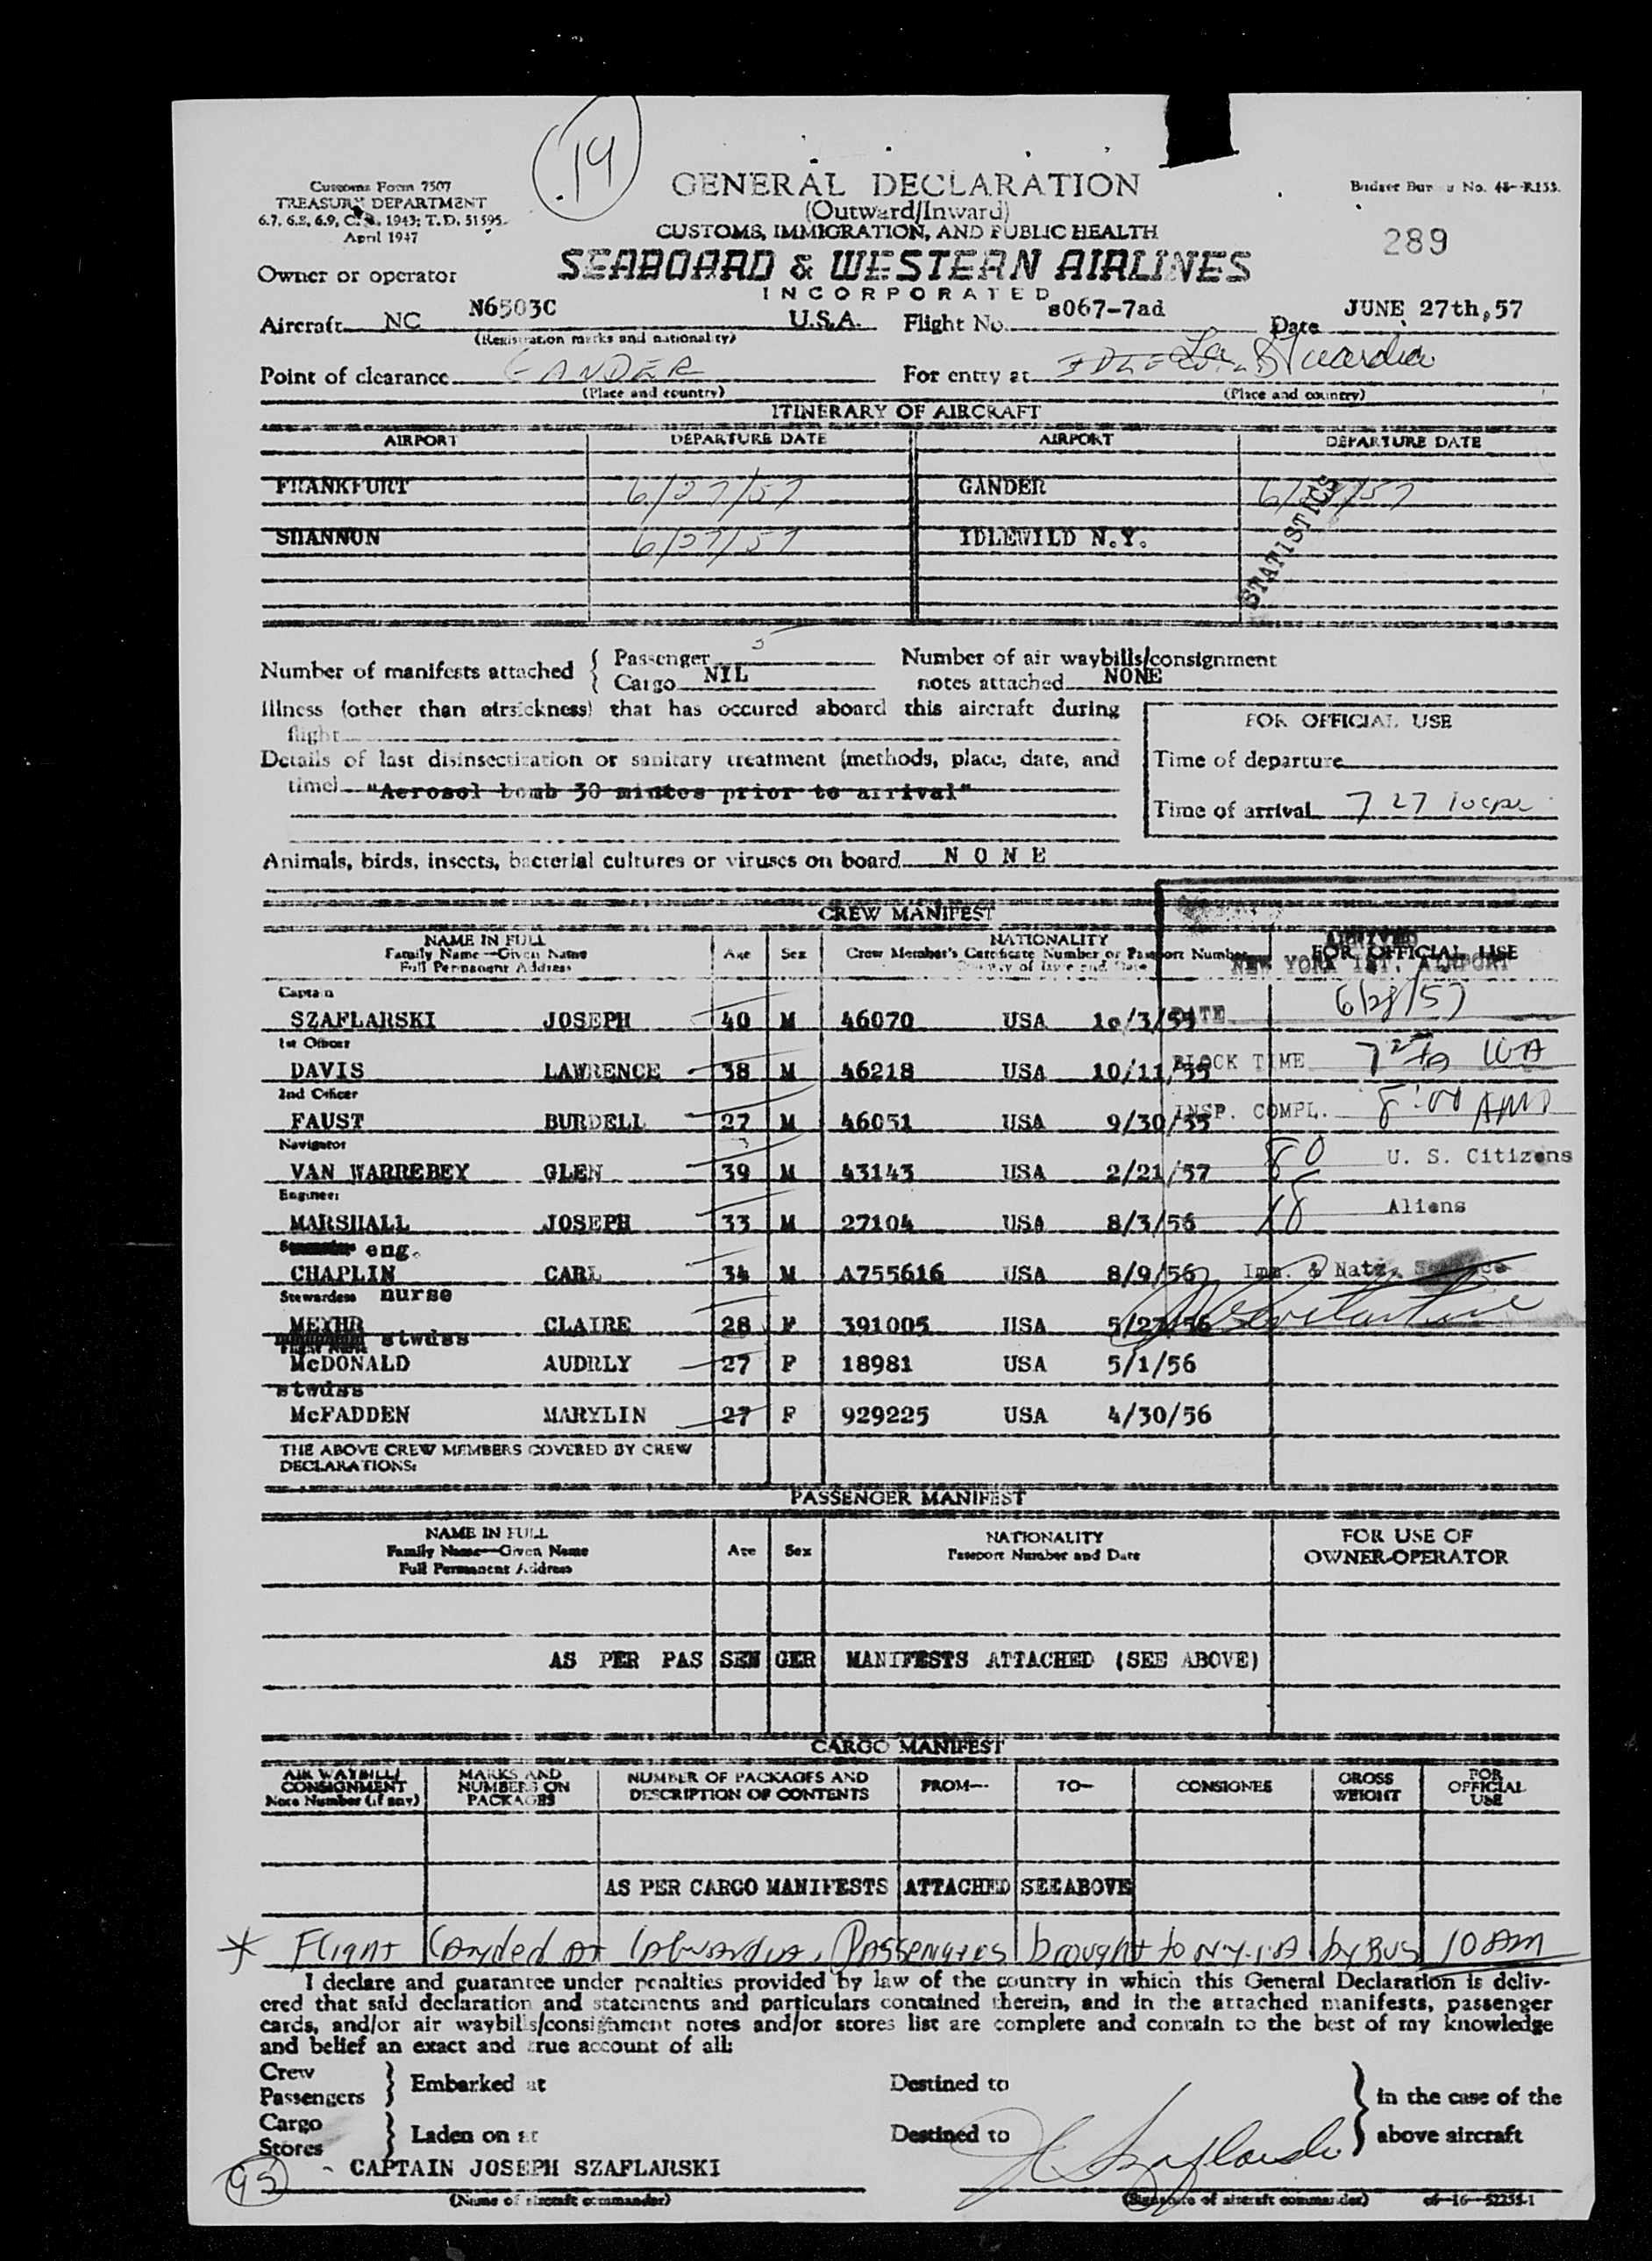 14
Customs Form 7507
TREASURY DEPARTMENT
6.7, 6.8, 6.9, C.R. 1943; T.D. 51595
April 1947
GENERAL DECLARATION
(Outward/Inward)
CUSTOMS, IMMIGRATION, AND PUBLIC HEALTH
Budget Bureau No. 48-R153.
289
Owner or operator SEABOARD & WESTERN AIRLINES
INCORPORATED
Aircraft NC N6503C U.S.A. Flight No. s067-7ad Date JUNE 27th,57
(Registration marks and nationality)
Point of clearance GANDER For entry at IDLEWILD La Guardia
(Place and country) (Place and country)
ITINERARY OF AIRCRAFT
AIRPORT DEPARTURE DATE AIRPORT DEPARTURE DATE
FRANKFURT 6/27/57 GANDER 6/ /57
SHANNON 6/27/57 IDLEWILD N.Y.
STATISTICS
Number of manifests attached { Passenger 5 Number of air waybills/consignment
Cargo NIL notes attached NONE
Illness (other than airsickness) that has occured aboard this aircraft during
flight
FOR OFFICIAL USE
Details of last disinsectization or sanitary treatment (methods, place, date, and
time) "Aerosol bomb 30 mintes prior to arrival"
Time of departure
Time of arrival 7 27
Animals, birds, insects, bacterial cultures or viruses on board NONE
CREW MANIFEST
NAME IN FULL
Family Name—Given Name
Full Permanent Address
Age Sex
NATIONALITY
Crew Member's Certificate Number or Passport Number
FOR OFFICIAL USE
ARRIVED
NEW YORK INT. AIRPORT
Captain
SZAFLARSKI JOSEPH 40 M 46070 USA 10/3/55
DATE 6/28/57
1st Officer
DAVIS LAWRENCE 38 M 46218 USA 10/11/55
BLOCK TIME 7
2nd Officer
FAUST BURDELL 27 M 46051 USA 9/30/55
INSP. COMPL. 8:00 AM
Navigator
VAN WARREBEY GLEN 39 M 43143 USA 2/21/57
80 U. S. Citizens
Engineer
MARSHALL JOSEPH 33 M 27104 USA 8/3/56
18 Aliens
eng.
CHAPLIN CARL 34 M A755616 USA 8/9/56
Imm. & Natz. Service
Stewardess nurse
MEYHR CLAIRE 28 F 391005 USA 5/23/56
stwdss
McDONALD AUDRLY 27 F 18981 USA 5/1/56
stwdss
McFADDEN MARYLIN 27 F 929225 USA 4/30/56
THE ABOVE CREW MEMBERS COVERED BY CREW
DECLARATIONS:
PASSENGER MANIFEST
NAME IN FULL
Family Name—Given Name
Full Permanent Address
Age Sex
NATIONALITY
Passport Number and Date
FOR USE OF
OWNER-OPERATOR
AS PER PASSENGER MANIFESTS ATTACHED (SEE ABOVE)
CARGO MANIFEST
AIR WAYBILL/
CONSIGNMENT
Note Number (if any)
MARKS AND
NUMBERS ON
PACKAGES
NUMBER OF PACKAGES AND
DESCRIPTION OF CONTENTS
FROM— TO— CONSIGNEE
GROSS
WEIGHT
FOR
OFFICIAL
USE
AS PER CARGO MANIFESTS ATTACHED SEEABOVE
* Flight Landed at LaGuardia, Passengers brought to N.Y.I.A by Bus 10 AM
I declare and guarantee under penalties provided by law of the country in which this General Declaration is deliv-
ered that said declaration and statements and particulars contained therein, and in the attached manifests, passenger
cards, and/or air waybills/consignment notes and/or stores list are complete and contain to the best of my knowledge
and belief an exact and true account of all:
Crew
Passengers } Embarked at Destined to } in the case of the
Cargo
Stores } Laden on at Destined to above aircraft
95
CAPTAIN JOSEPH SZAFLARSKI J Szaflarski
(Name of aircraft commander) (Signature of aircraft commander) c6-16-52255-1